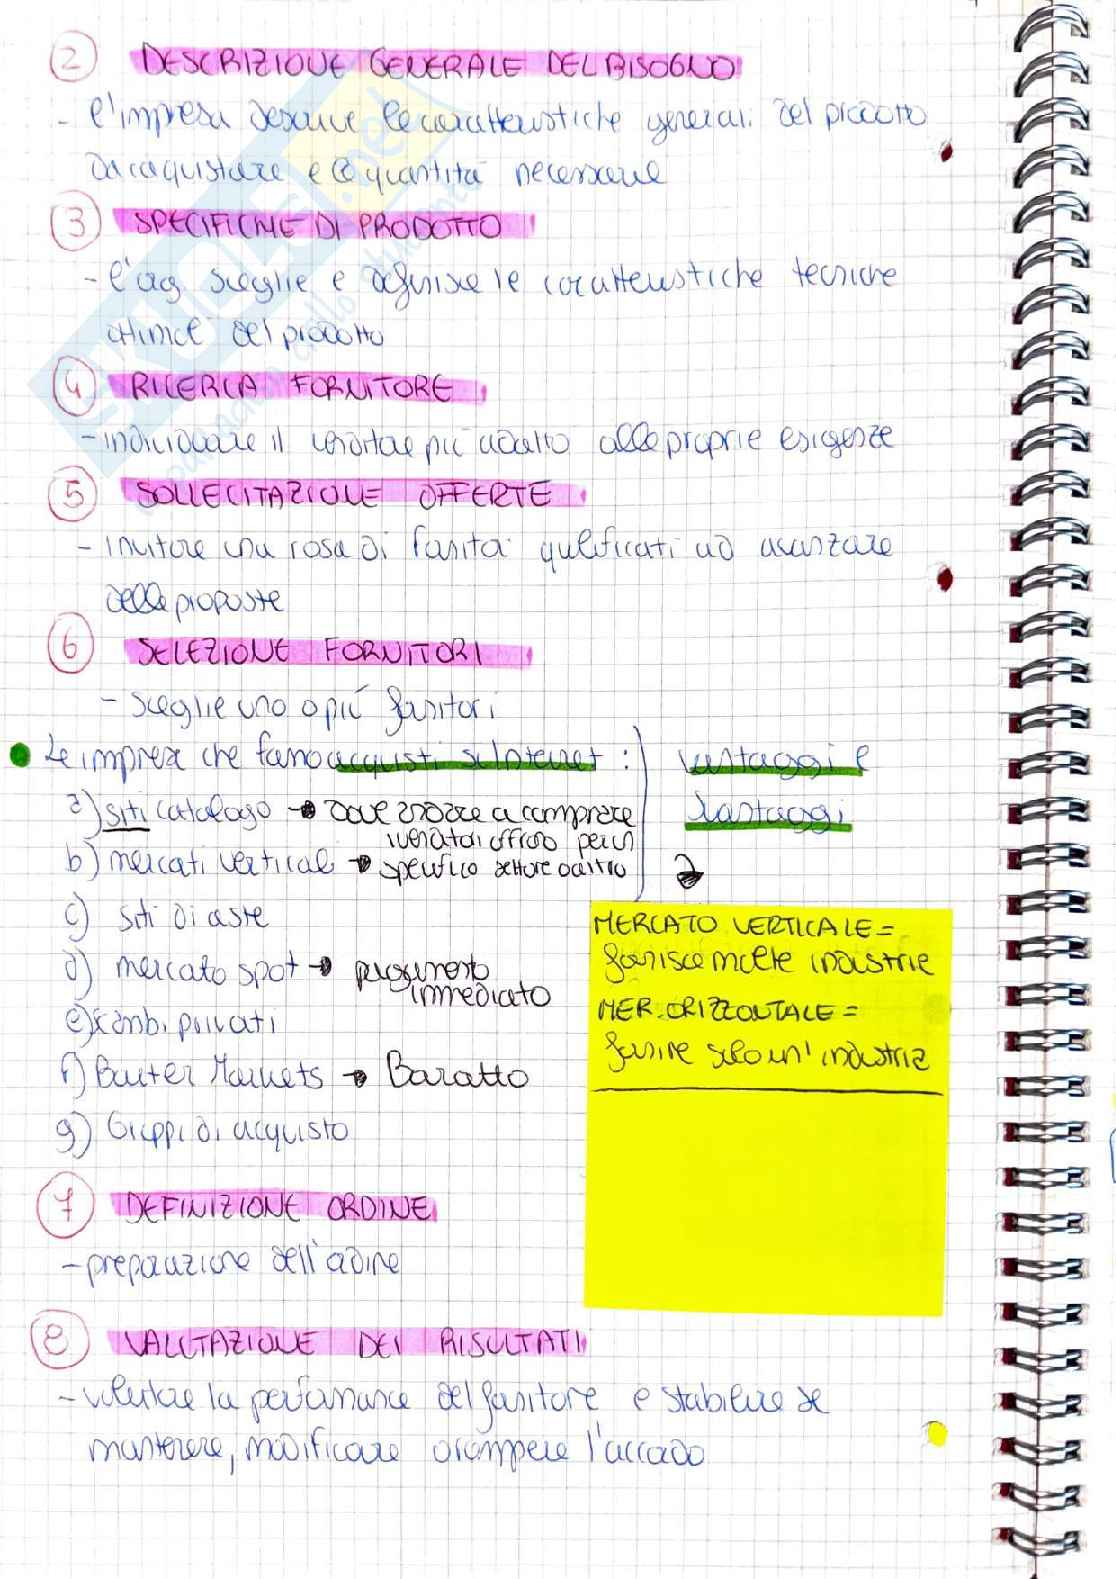 2 DESCRIZIONE GENERALE DEL BISOGNO
- l'impresa descrive le caratteristiche generali del prodotto
da acquistare e la quantità necessarie
3 SPECIFICHE DI PRODOTTO
- l'org. sceglie e definisce le caratteristiche tecniche
ottimali del prodotto
4 RICERCA FORNITORE
- individuare il venditore più adatto alle proprie esigenze
5 SOLLECITAZIONE OFFERTE
- invitare una rosa di fornitori qualificati ad avanzare
delle proposte
6 SELEZIONE FORNITORI
- sceglie uno o più fornitori
Le imprese che fanno acquisti su Internet : vantaggi e
svantaggi
a) siti catalogo → dove andare a comprare
b) mercati verticali → venditori offrono per un
specifico settore
c) siti di aste
d) mercato spot → pagamento
immediato
e) scambi privati
f) Barter Markets → Baratto
g) Gruppi di acquisto
MERCATO VERTICALE =
fornisce molte industrie
MER. ORIZZONTALE =
fornire solo un' industria
7 DEFINIZIONE ORDINE
- preparazione dell'ordine
8 VALUTAZIONE DEI RISULTATI
- valutare la performance del fornitore e stabilire se
mantenere, modificare o rompere l'accordo
SKUOLA.net